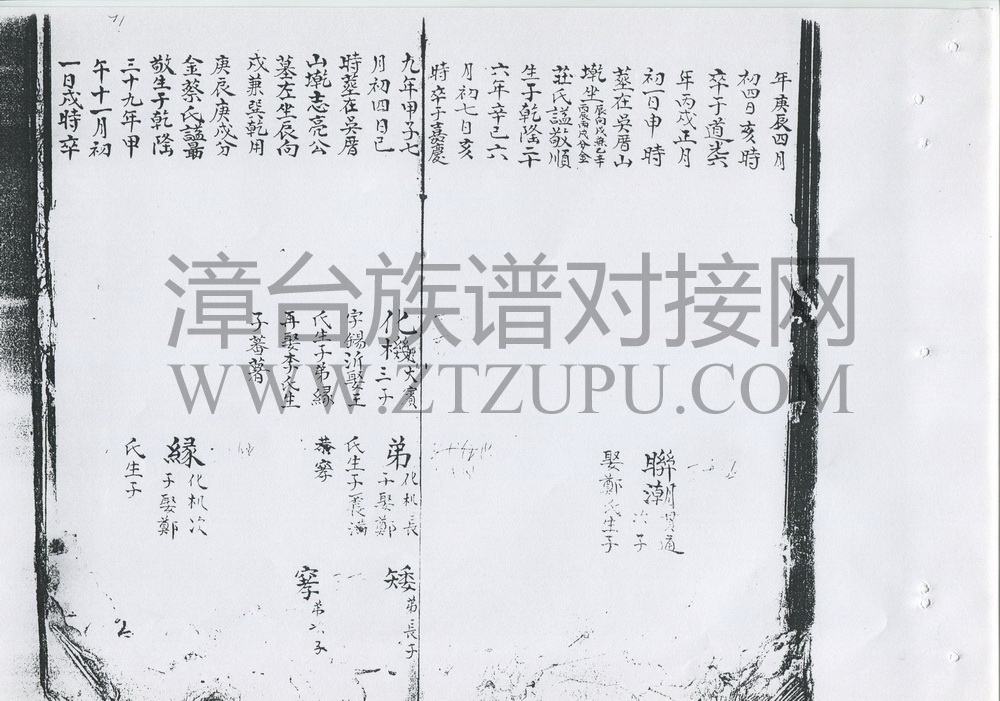 年庚辰四月
初四日亥時
卒于道光六
年丙戌正月
初一日申時
塟在吳厝山
墘坐辰向戌兼乙辛
丙辰丙戌分金
莊氏謚敬順
生于乾隆二十
六年辛巳六
月初七日亥
時卒于嘉慶
九年甲子七
月初四日巳
時塟在吳厝
山墘志亮公
墓左坐辰向
戌兼巽乾用
庚辰庚戌分
金蔡氏謚勗
敬生于乾隆
三十九年甲
午十一月初
一日戌時卒
聯潮
次子
娶鄭氏生子
化機大賓
三子
字錫沂娶王
氏生子弟緣
再娶李氏生
子蕃著
弟化机長
子娶鄭
氏生子
緣化机次
子娶鄭
氏生子
矮弟長子
弟次子
漳台族谱对接网
WWW.ZTZUPU.COM